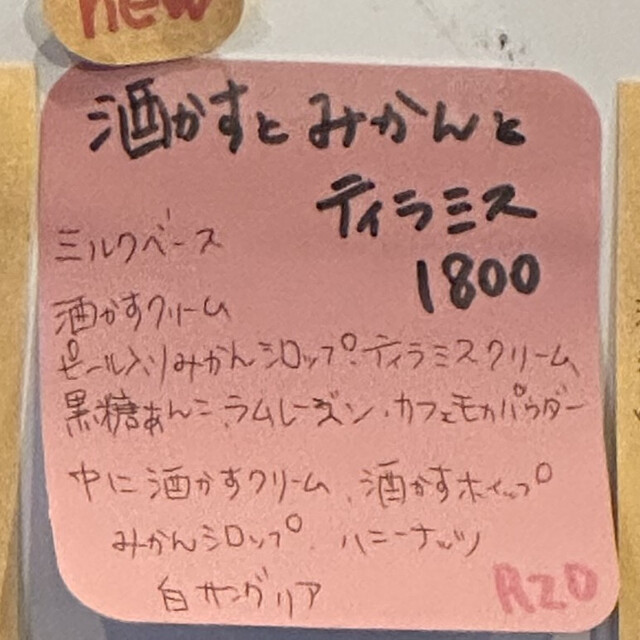 new
酒かすとみかんと
ティラミス
ミルクベース
1800
酒かすクリーム
ピール入りみかんシロップ、ティラミスクリーム、
黒糖あんこ、ラムレーズン、カフェモカパウダー
中に酒かすクリーム、酒かすホイップ
みかんシロップ、ハニーナッツ
白サングリア
R20